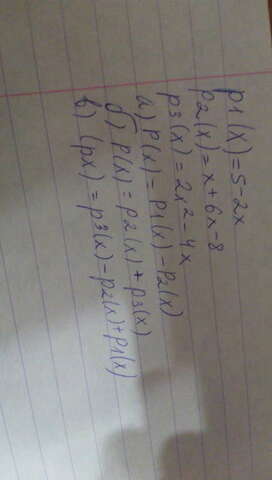 p1(x) = 5-2x
p2(x) = x+6x-8
p3(x) = 2x²-4x
а) p(x) = p1(x) - p2(x)
б) p(x) = p2(x) + p3(x)
в) (px) = p3(x) - p2(x) + p1(x)